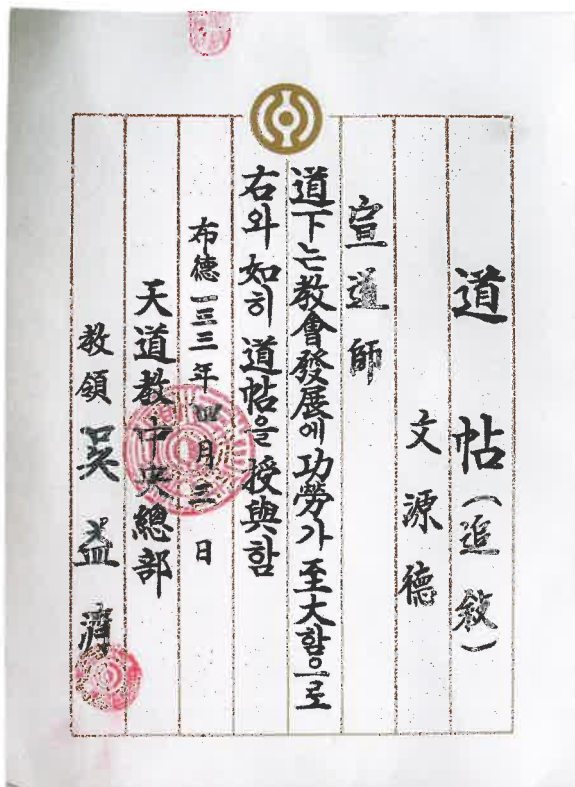 道帖(追敍)
文源德
宣道師
道下는敎會發展에功勞가至大함으로
右와如히道帖을授與함
布德一三三年四月三日
天道敎中央總部
敎領吳益濟